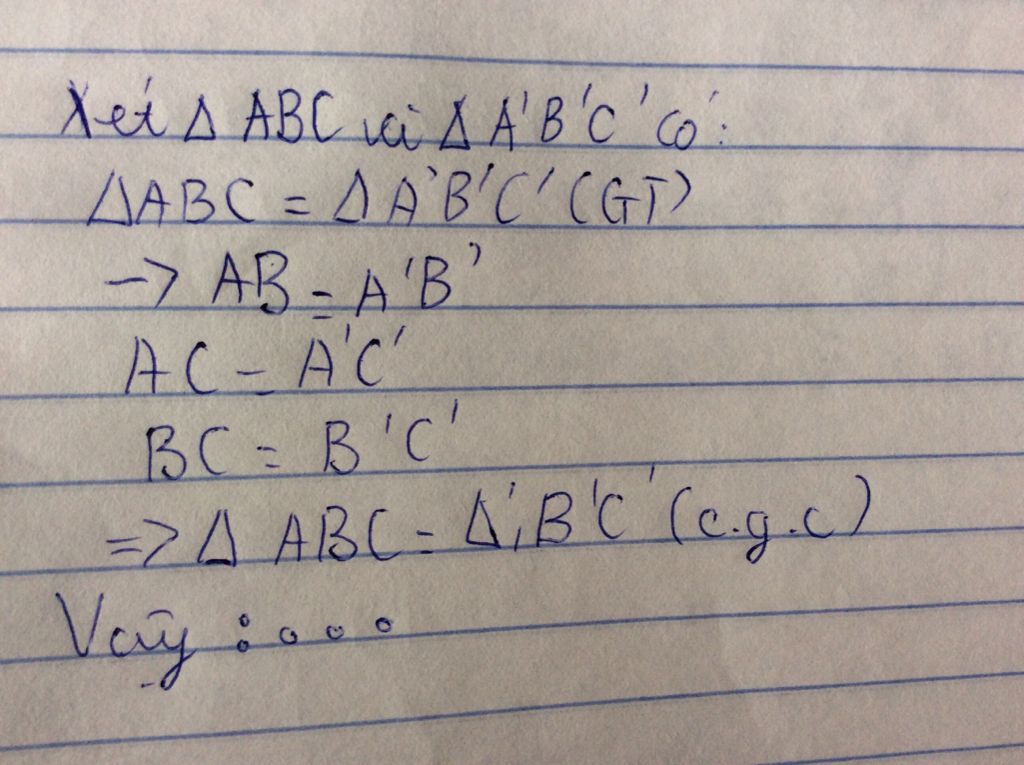 Xét Δ ABC và Δ A'B'C' có:
ΔABC = Δ A'B'C' (GT)
-> AB = A'B'
AC = A'C'
BC = B'C'
=> Δ ABC = Δ'B'C' (c.g.c)
Vậy : . . .